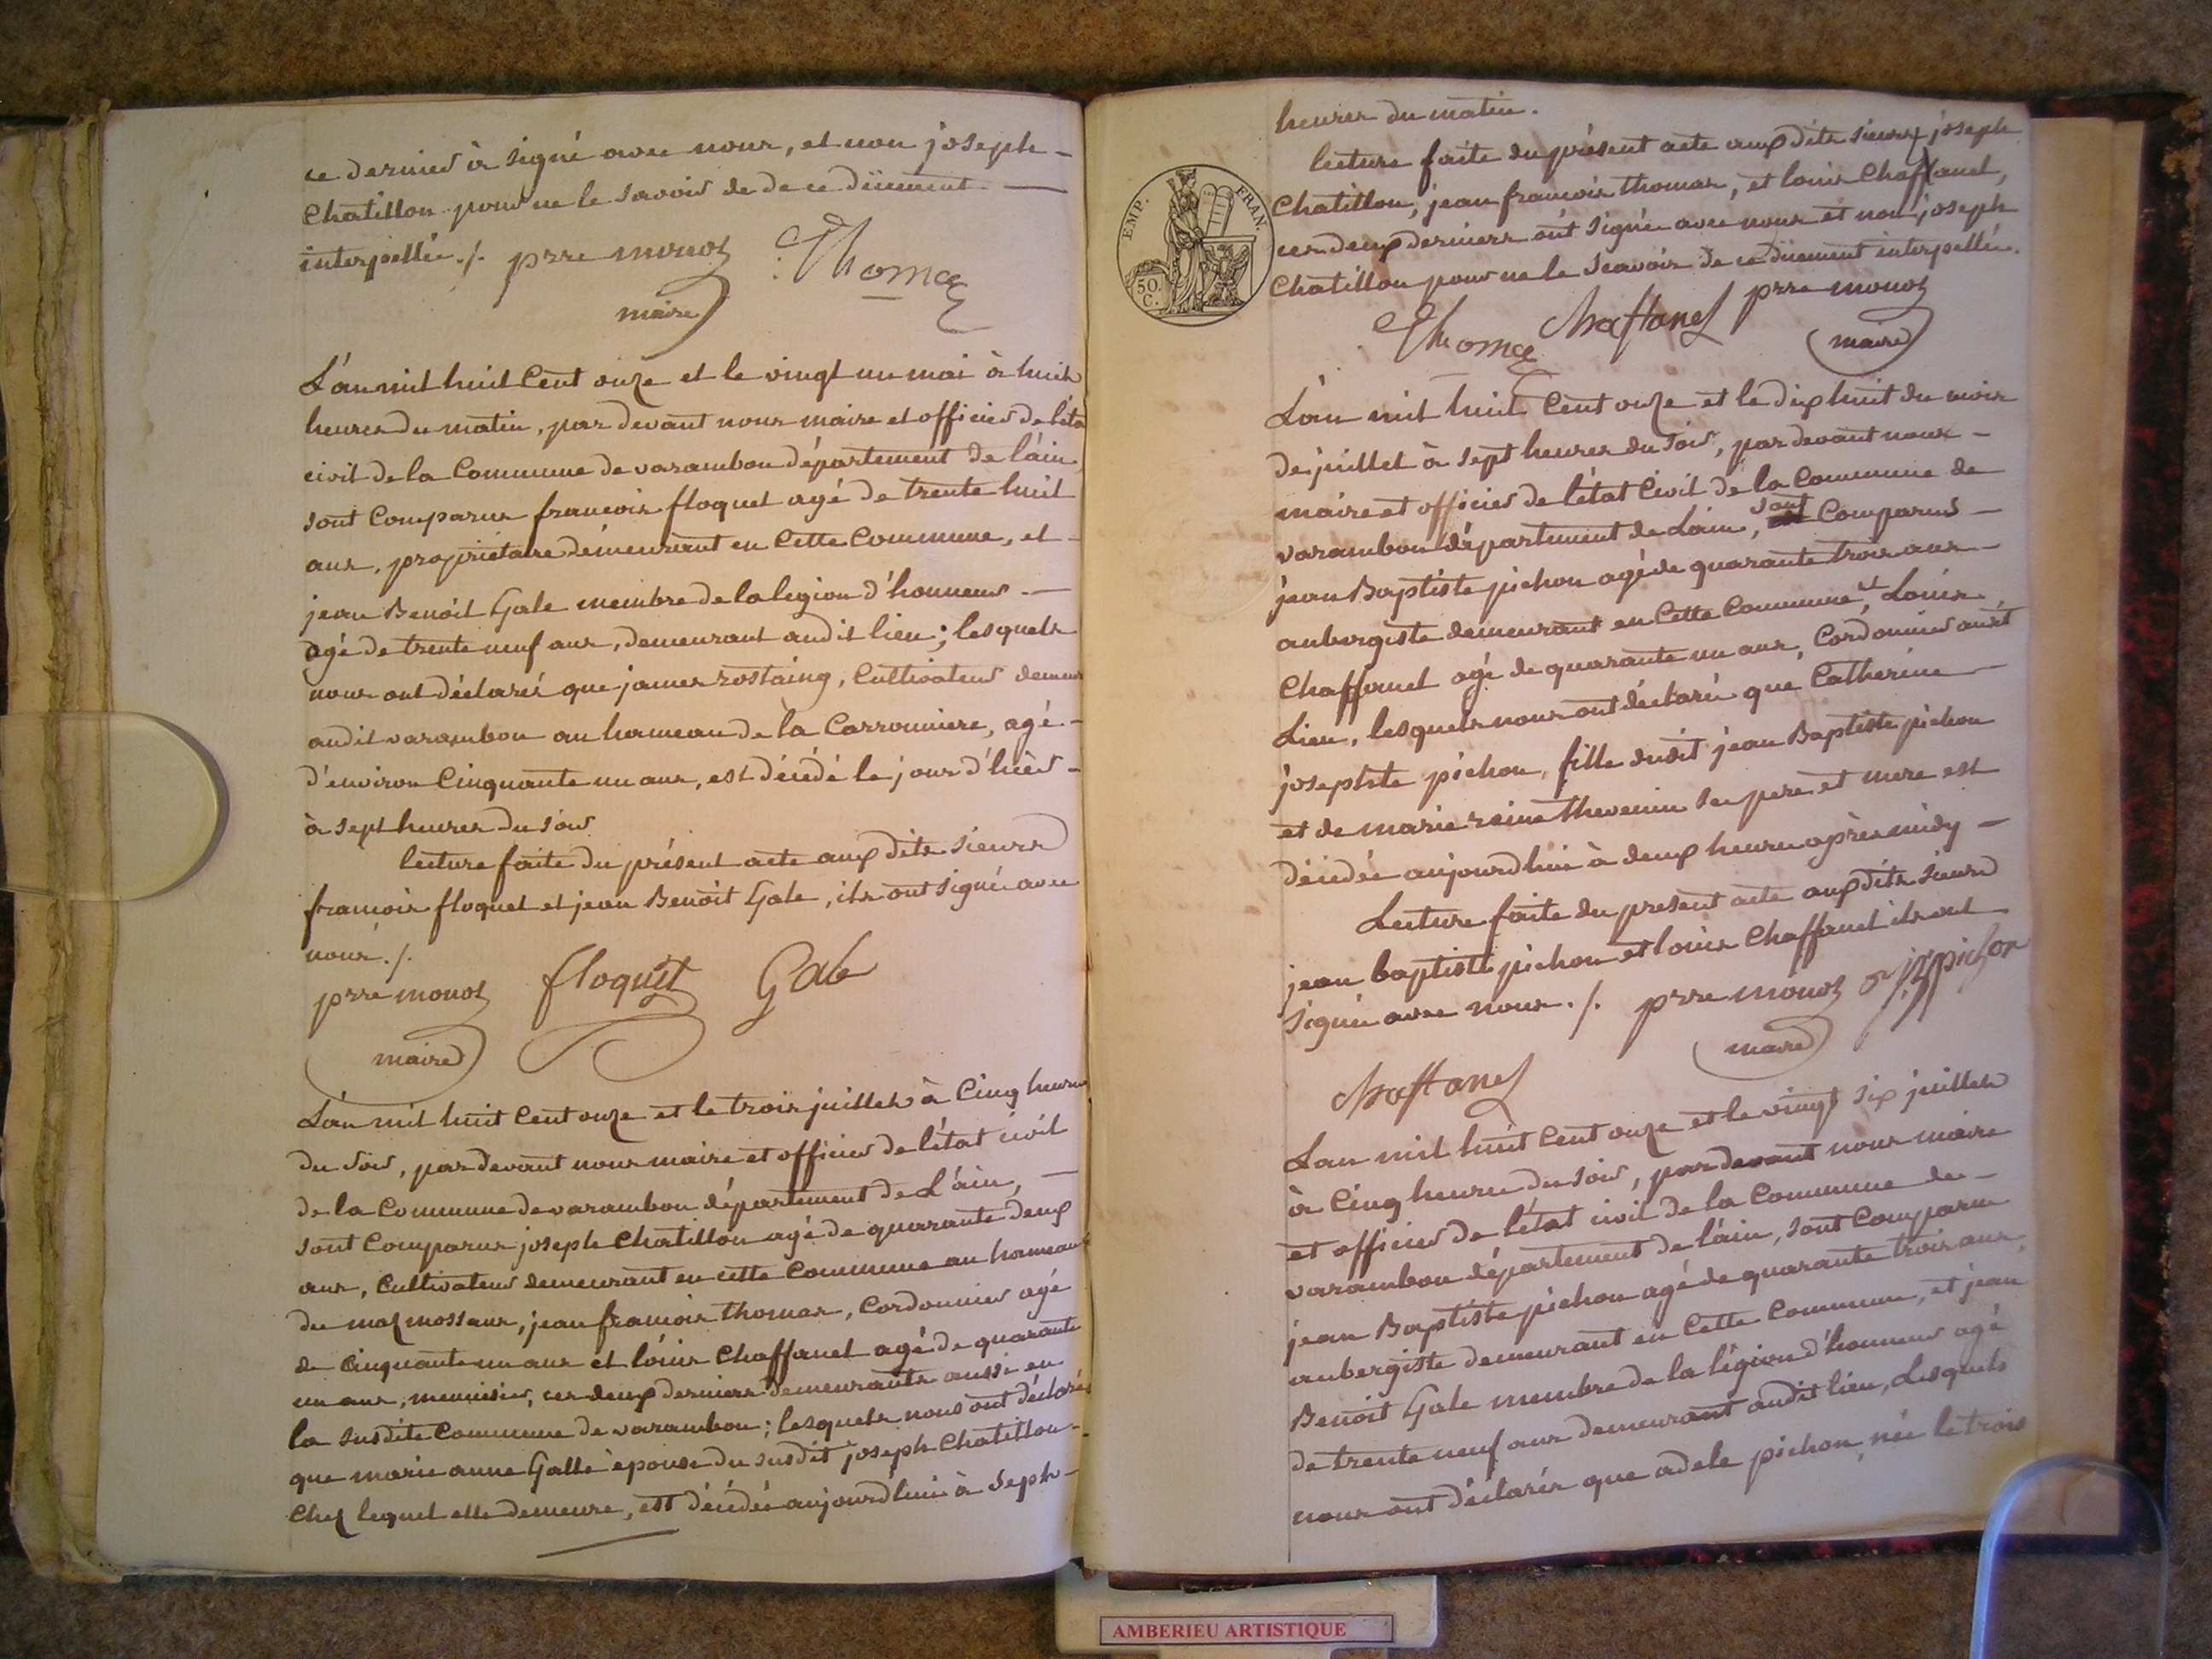 ce dernier à signé avec nous, et non joseph
Chatillon pour ne le savoir de de ce düement
interpellé ./. prre monoz Thomas
maire
L'an mil huit Cent onze et le vingt un mai à huit
heures du matin, par devant nous maire et officier de l'éta
civil de la Commune de varambon département de l'ain,
sont Comparus francois floquet agé de trente huit
ans, propriétaire démeurant en Cette Commune, et
jean Benoit Gale membre de la legion d'honneur
agé de trente neuf ans, demeurant audit lieu; lesquels
nous ont déclarés que james rostaing, Cultivateur demeur
audit varambon au hameau de la Carronniere, agé
d'environ Cinquante un ans, est décédé le jour d'hièr
à sept heures du soir
lecture faite du présent acte aux dits sieurs
francois floquet et jean Benoit Gale, ils ont signé avec
nous ./.
prre monoz floquet Gale
maire
L'an mil huit Cent onze et le trois juillet à Cinq heures
du soir, par devant nous maire et officier de l'état civil
de la Commune de varambon département de L'ain,
sont Comparus joseph Chatillon agé de quarante deux
ans, Cultivateur demeurant en cette Commune au hameau
du maz mossans, jean francois thomas, Cordonnier agé
de Cinquante un ans et loüis Chaffanel agé de quarante
un ans, menuisier, ces deux derniers demeurants aussi en
la susdite Commune de varambon; lesquels nous ont déclarés
que marie anne Galle épouse du susdit joseph Chatillon
Chez lequel elle demeure, est décédée aujourd'hui à sept
heures du matin.
lecture faite du présent acte aux dits sieurs joseph
Chatillon, jean francois thomas, et louis Chaffanel,
ces deux derniers ont signé avec nous et non joseph
Chatillon pour ne le scavoir de ce düement interpellé.
Thomas Chaffanel prre monoz
maire
EMP. FRAN.
50. C.
L'an mil huit Cent onze et le dix huit du mois
de juillet à sept heures du soir, par devant nous
maire et officier de l'état Civil de la Commune de
varambon département de Lain, sont Comparus
jean Baptiste pichon agé de quarante trois ans
aubergiste demeurant en Cette Commune, et Louis
Chaffanel agé de quarante un ans, Cordonnier audit
Lieu, lesquels nous ont déclaré que Catherine
josephte pichon, fille dudit jean Baptiste pichon
et de marie reine thevenin ses pere et mere est
décédée aujourd'hui à deux heures après midy
Lecture faite du present acte aux dits sieurs
jean baptiste pichon et louis Chaffanel ils ont
signé avec nous ./. prre monoz pichon
maire
Chaffanel
L'an mil huit Cent onze et le vingt six juillet
à Cinq heures du soir, par devant nous maire
et officier de l'état civil de la Commune de
varambon département de l'ain, sont Comparus
jean Baptiste pichon agé de quarante trois ans,
aubergiste demeurant en Cette Commune, et jean
Benoit Gale membre de la légion d'honneur agé
de trente neuf ans demeurant audit lieu, Lesquels
nous ont déclarés que adele pichon, née le trois
AMBERIEU ARTISTIQUE